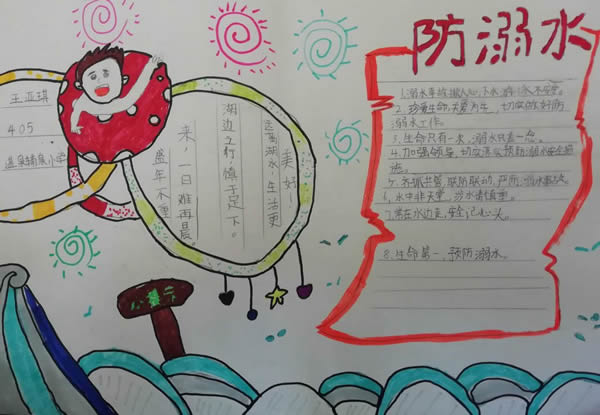 防溺水
王亚琪
405
温泉镇泉小学
远离湖水,生活更
美好!
湖边之行,慎于足下。
盛年不重
来,一日难再晨。
1.溺水事故揪人心,下水游泳
2.珍爱生命,关爱为先,切实做好防
溺水工作。
3.生命只有一次,溺水只在一念。
4.加强领导,切实落实预防溺水安全措
施。
5.齐抓共管,联防联动,严防溺水事故。
6.水中非天堂,涉水请慎重。
7.常在水边走,安全记心头。
8.生命第一,预防溺水。